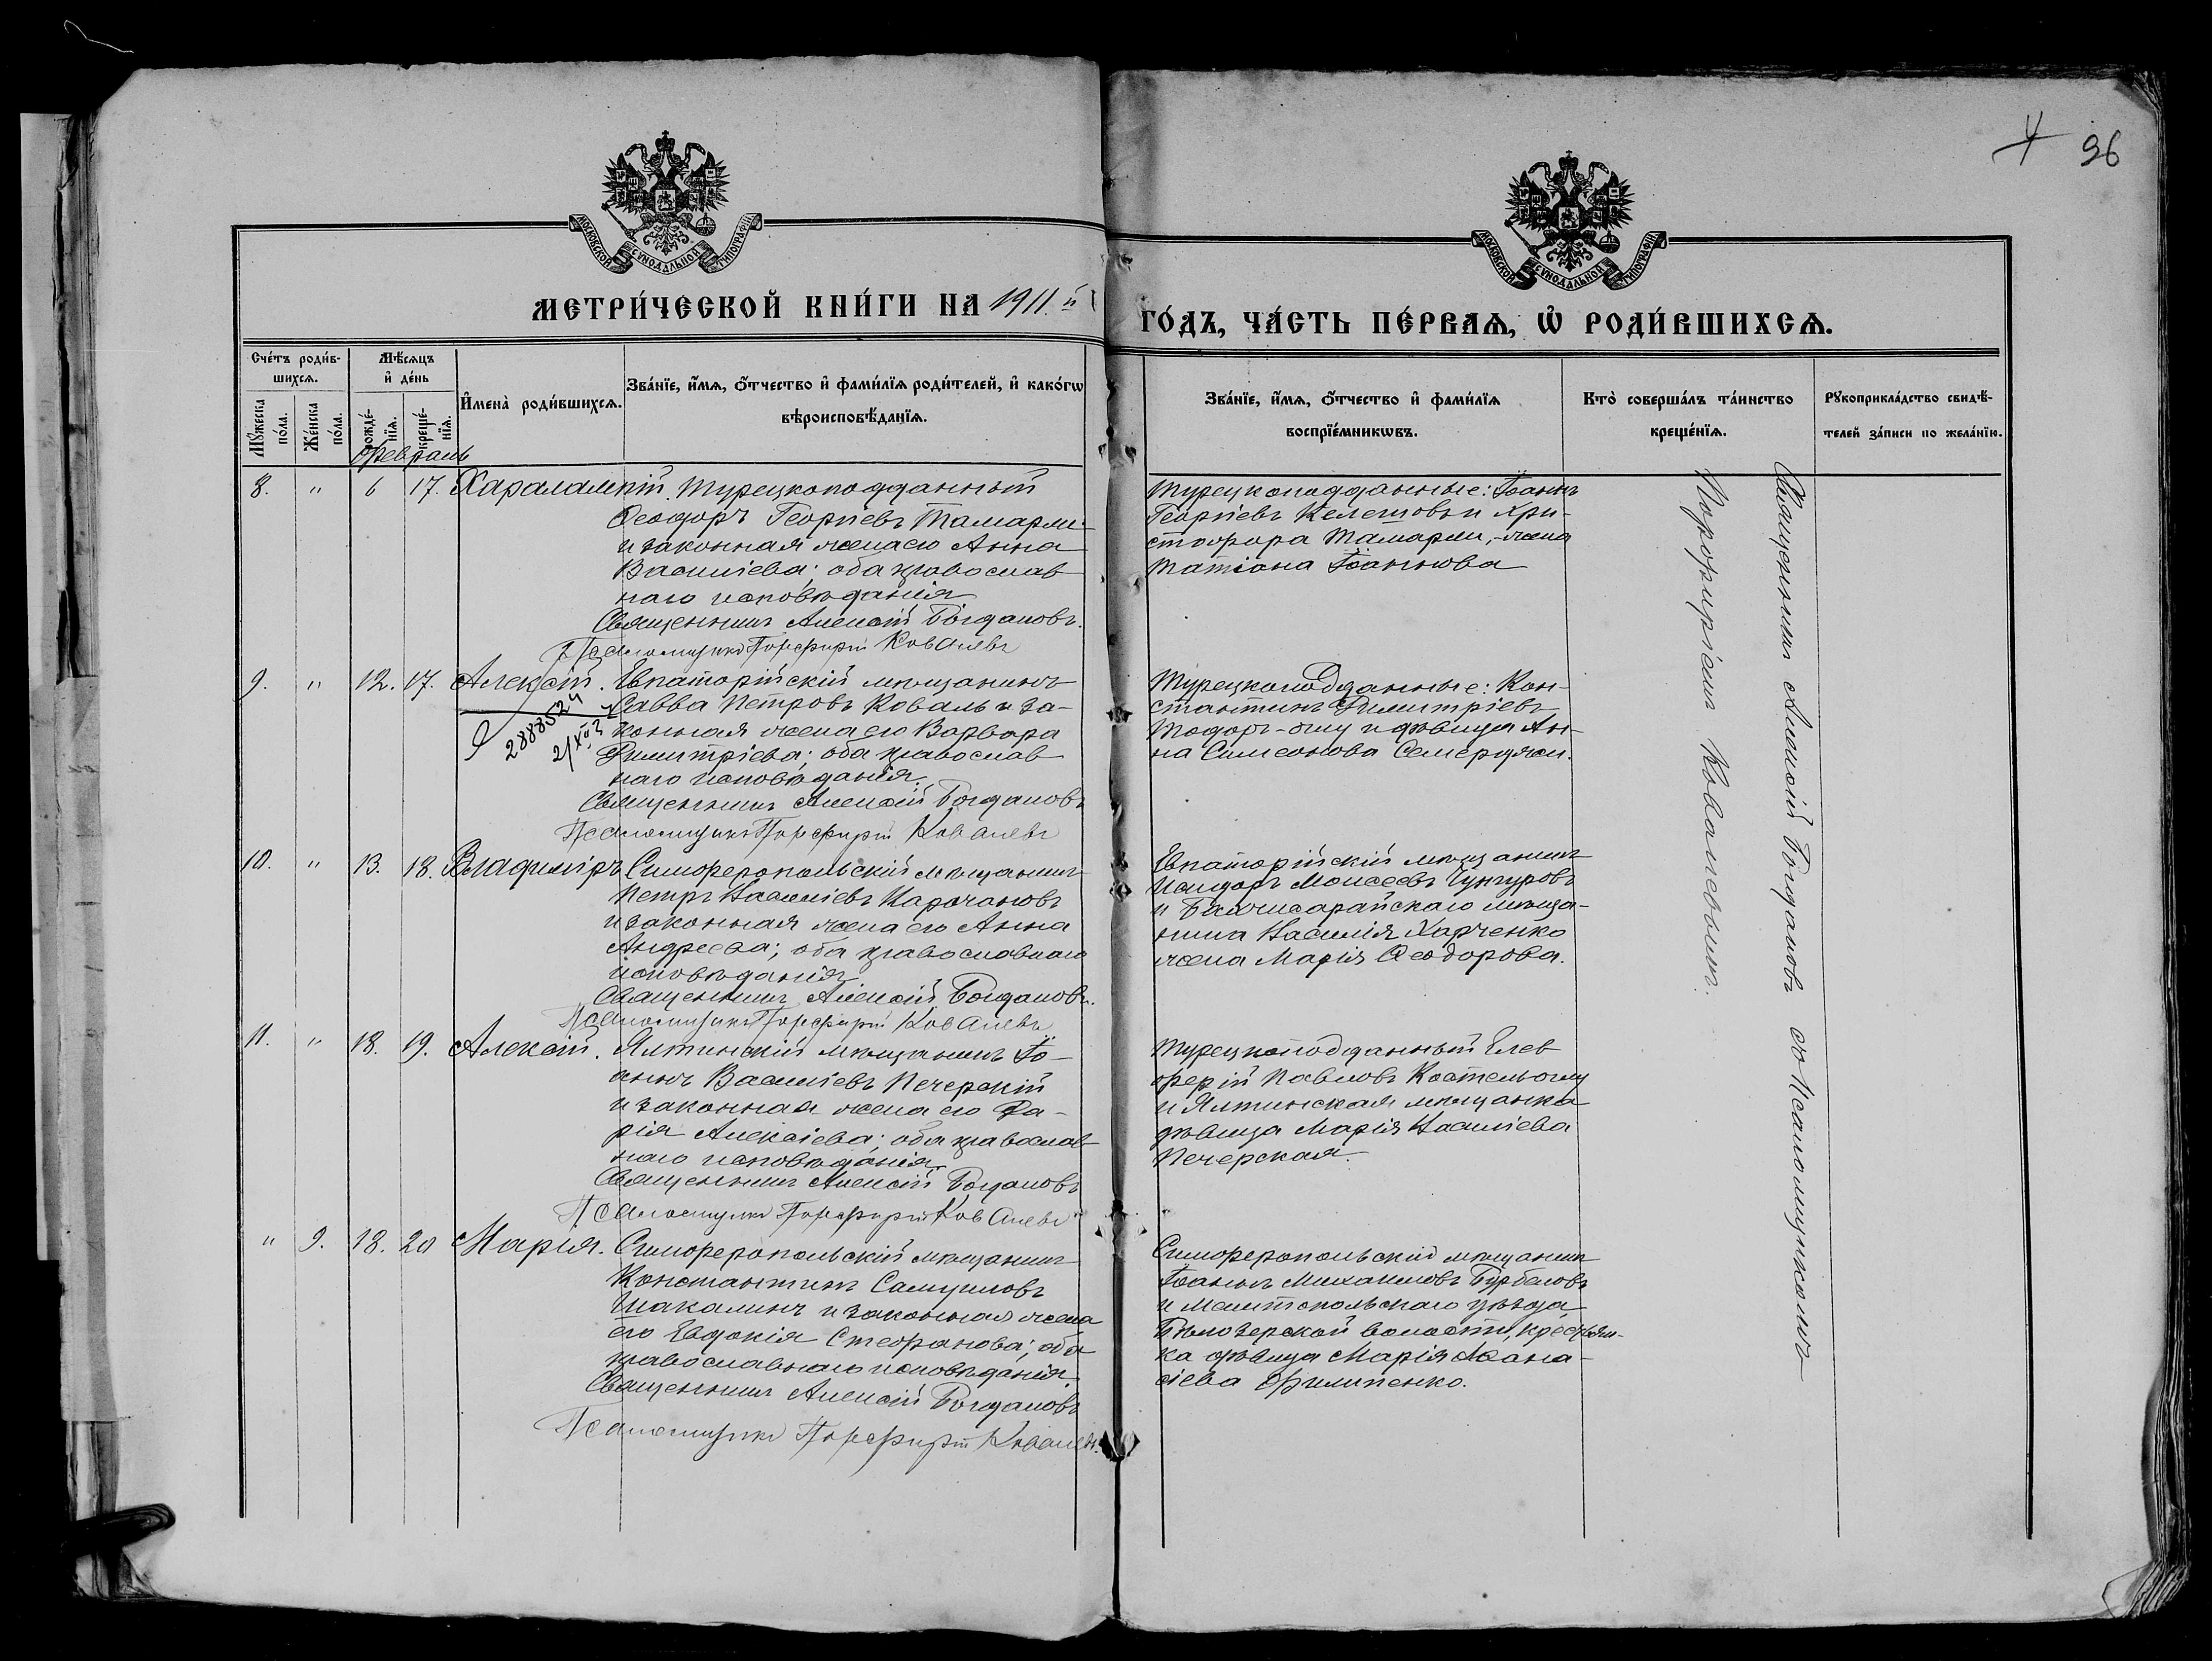 4 96
МОСКОВСКОЙ СУНОДАЛЬНОЙ ТИПОГРАФІИ
МОСКОВСКОЙ СУНОДАЛЬНОЙ ТИПОГРАФІИ
МЕТРИ́ЧЕСКОЙ КНИ́ГИ НА 1911.й
ГО́ДЪ, ЧА́СТЬ ПЕ́РВАѦ, Ѡ҆ РОДИ́ВШИХСѦ.
Сче́тъ роди́в-
шихсѧ.
Мꙋ́жеска по́ла.
Же́нска по́ла.
Мѣ́сѧцъ
и҆ де́нь
рожде́-
нїѧ.
креще́-
нїѧ.
И҆мена̀ роди́вшихсѧ.
Зва́нїе, и҆́мѧ, ѻ҆́тчество и҆ фами́лїѧ роди́телей, и҆ како́гѡ
вѣроисповѣ́данїѧ.
Зва́нїе, и҆́мѧ, ѻ҆́тчество и҆ фами́лїѧ
воспрїе́мникѡвъ.
Кто̀ соверша́лъ та́инство
креще́нїѧ.
Рꙋкоприкла́дство свидѣ́-
телей за́писи по жела́нїю.
Февраль
8. " 6 17. Харалампій. Турецкоподданный
Ѳеодоръ Георгіевъ Тамарли
и законная жена его Анна
Василіева; оба православ-
наго исповѣданія
Священникъ Алексій Богдановъ.
Псаломщикъ Порфирій Ковалевъ
Турецкоподданные: Іоаннъ
Георгіевъ Келешовъ и Хри-
стофора Тамарли, - жена
Татіана Іоаннова
9. " 12. 17. Алексій. Евпаторійскій мѣщанинъ
Савва Петровъ Коваль и за-
конная жена его Варвара
Димитріева; оба православ-
наго исповѣданія.
2888524
Священникъ Алексій Богдановъ
Псаломщикъ Порфирій Ковалевъ
Турецкоподданные: Кон-
стантинъ Димитріевъ
Тодоръ-оглу и дѣвица Ан-
на Симеонова Семерджи.
10. " 13. 18. Владиміръ Симферопольскій мѣщанинъ
Петръ Василіевъ Карочановъ
и законная жена его Анна
Андреева; оба православнаго
исповѣданія
Священникъ Алексій Богдановъ.
Псаломщикъ Порфирій Ковалевъ
Евпаторійскій мѣщанинъ
Исидоръ Моисеевъ Чунгуровъ
и Бахчисарайскаго мѣща-
нина Василія Харченко
жена Марія Ѳеодорова.
11. " 18. 19. Алексій. Ялтинскій мѣщанинъ Іо-
аннъ Василіевъ Печерскій
и законная жена его Да-
рія Алексіева; оба православ-
наго исповѣданія
Священникъ Алексій Богдановъ
Псаломщикъ Порфирій Ковалевъ
Турецкоподданный Елев-
ферій Павловъ Костельоглу
и Ялтинская мѣщанка
дѣвица Марія Василіева
Печерская.
" 9. 18. 20 Марія. Симферопольскій мѣщанинъ
Константинъ Самуиловъ
Шакалинъ и законная жена
его Евдокія Стефанова; оба
православнаго исповѣданія.
Священникъ Алексій Богдановъ
Псаломщикъ Порфирій Ковалевъ.
Симферопольскій мѣщанинъ
Іоаннъ Михаиловъ Бурбеловъ
и Мелитопольскаго уѣзда
Бѣлозерской волости, крестьян-
ка дѣвица Марія Аѳана-
сіева Филипенко.
Священникъ Алексій Богдановъ съ Псаломщикомъ
Порфиріемъ Ковалевымъ.